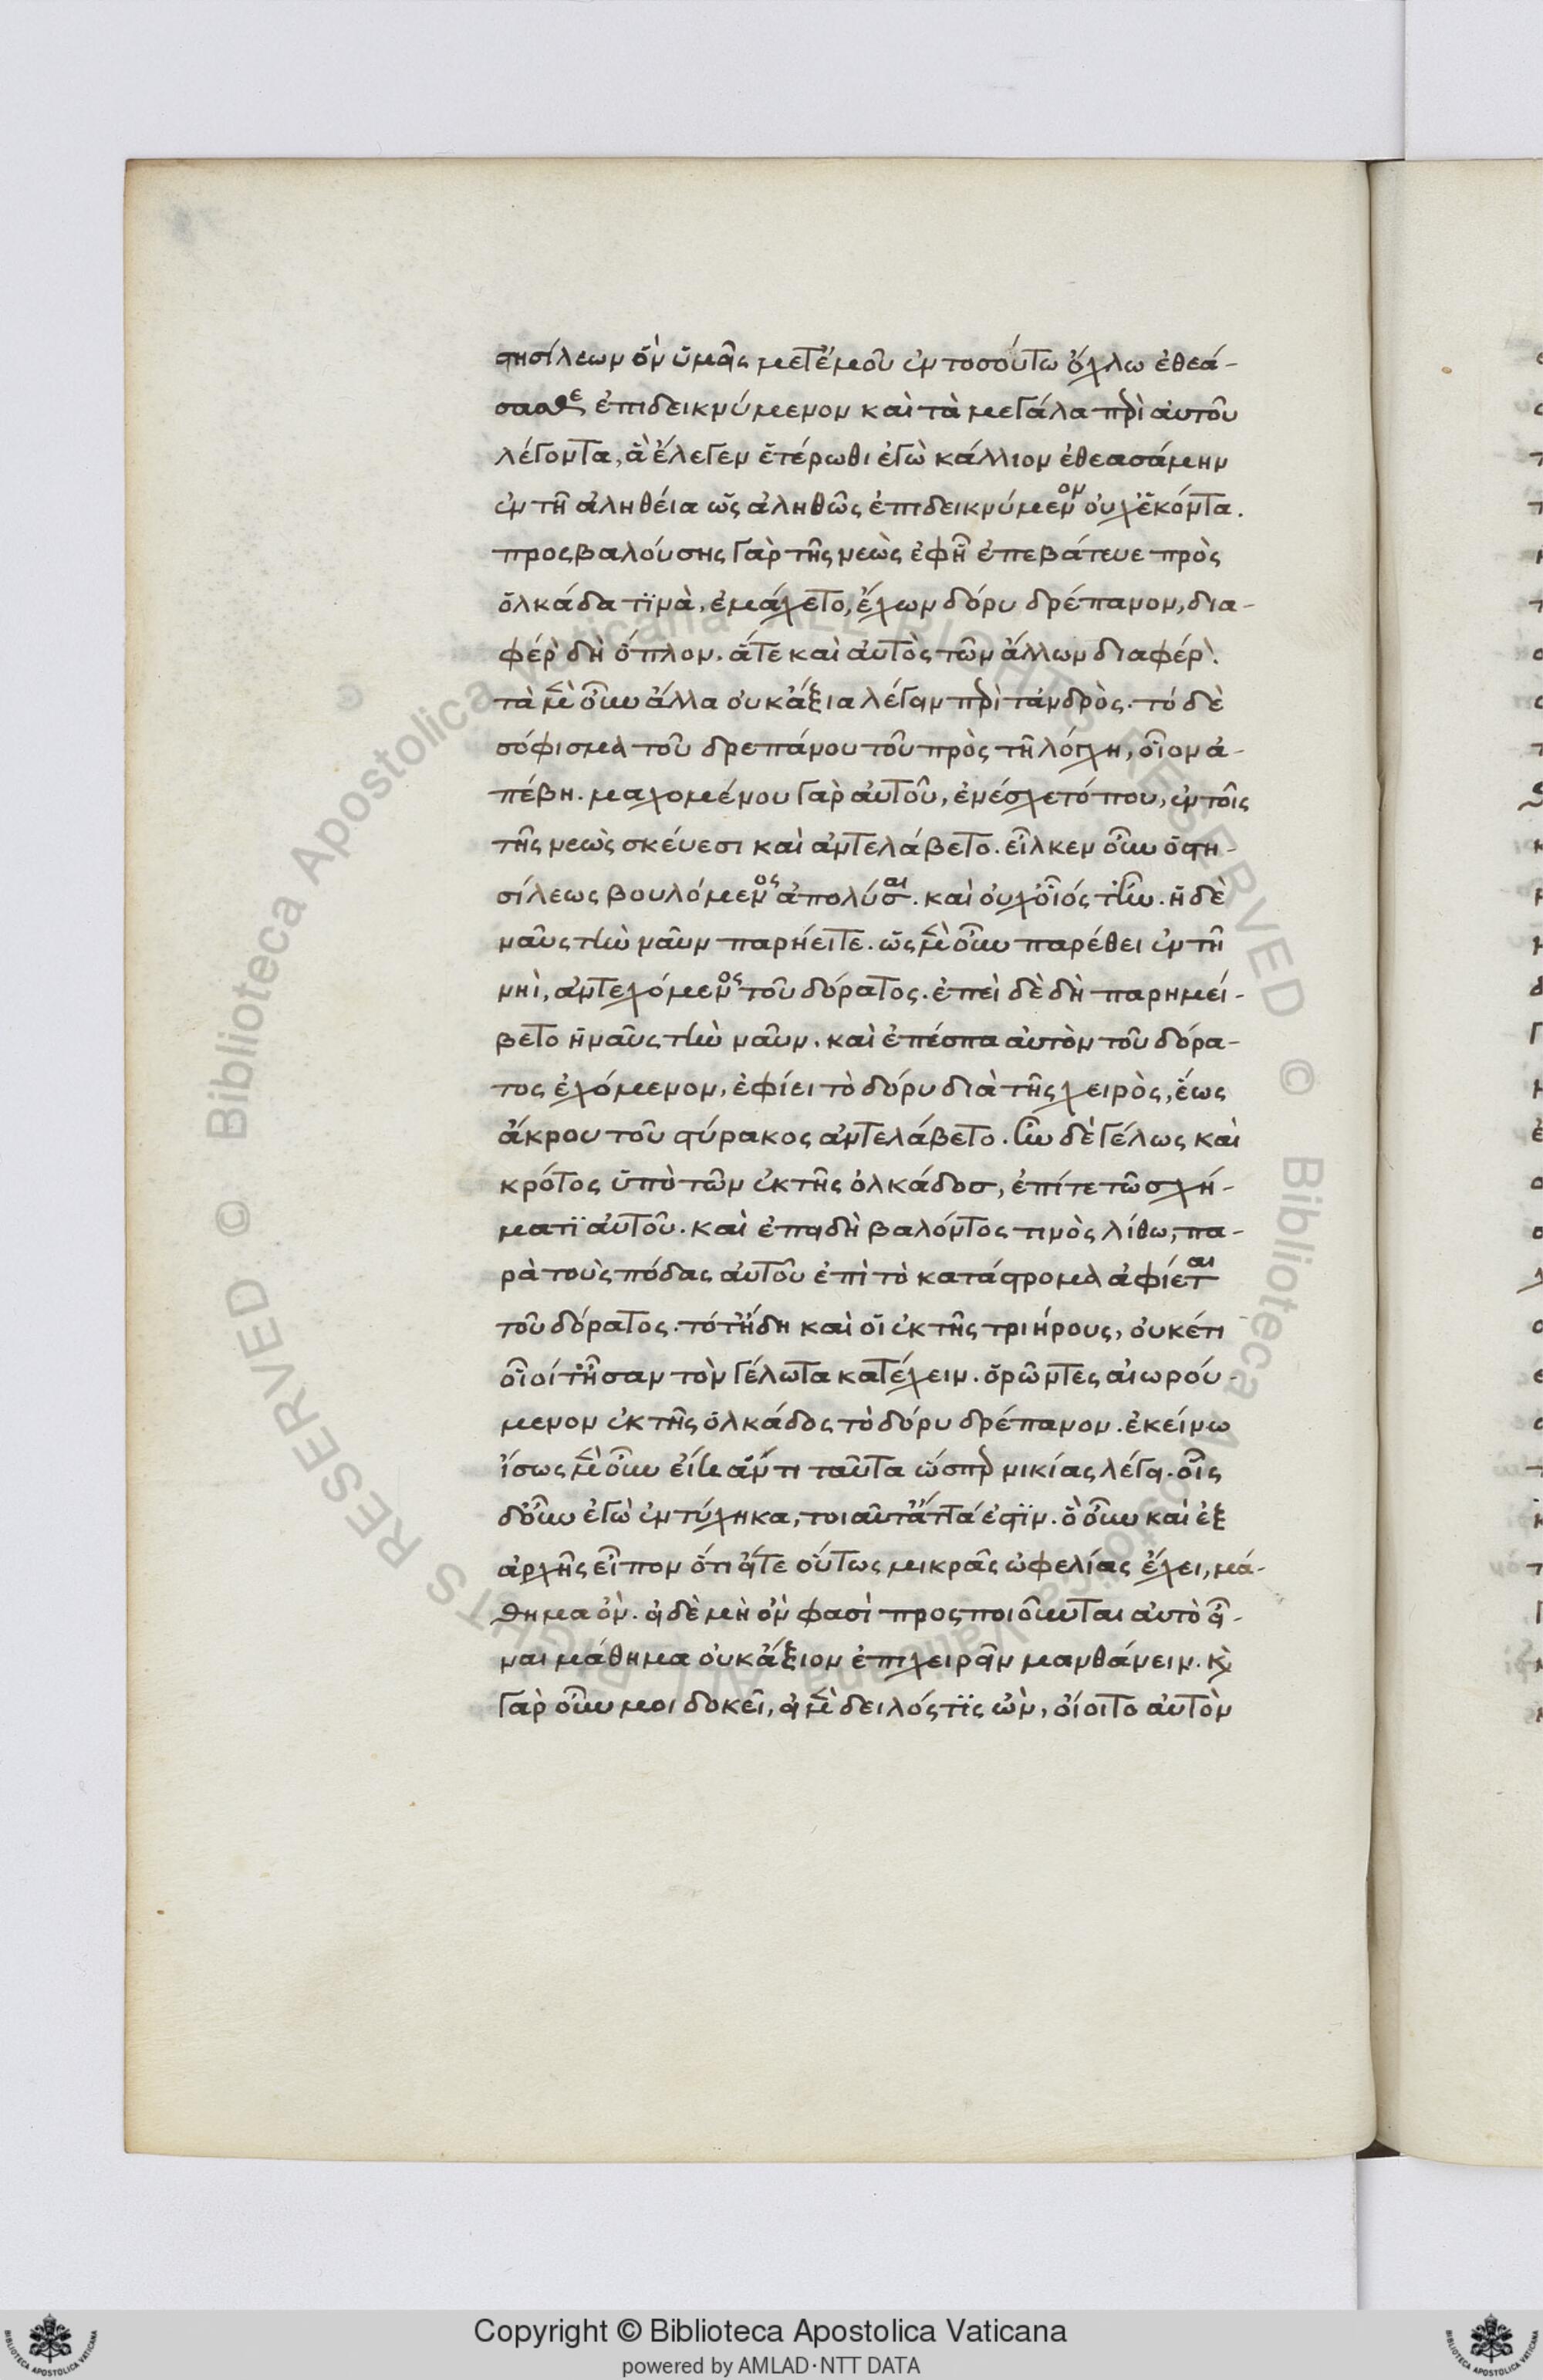 στησίλεων ὃν ὑμεῖς μετ' ἐμοῦ ἐν τοσούτω ὄχλω ἐθεά-
σασθε ἐπιδεικνύμενον καὶ τὰ μεγάλα περὶ αὑτοῦ
λέγοντα, ἃ ἔλεγεν ἑτέρωθι ἐγὼ κάλλιον ἐθεασάμην
ἐν τῆ ἀληθεία ὡς ἀληθῶς ἐπιδεικνύμενον οὐχ ἑκόντα.
προςβαλούσης γὰρ τῆς νεὼς ἐφ' ἧ ἐπεβάτευε πρὸς
ὁλκάδα τϊνὰ, ἐμάχετο, ἔχων δόρυ δρέπανον, δια-
φέρον δὴ ὅπλον. ἅτε καὶ αὐτὸς τῶν ἄλλων διαφέρων.
τὰ μὲν οὖν ἄλλα οὐκ ἄξια λέγειν περὶ τἀνδρὸς. τὸ δὲ
σόφισμα τοῦ δρεπάνου τοῦ πρὸς τῆ λόγχη, οἷον ἀ-
πέβη. μαχομένου γὰρ αὐτοῦ, ἐνέσχετό που, ἐν τοῖς
τῆς νεὼς σκεύεσι καὶ ἀντελάβετο. εἷλκεν οὖν ὁ στη-
σίλεως βουλόμενος ἀπολύσαι. καὶ οὐχ οἷός τ' ἦν. ἡ δὲ
ναῦς τὴν ναῦν παρήειτε. ὡς μὲν οὖν παρέθει ἐν τῆ
νηὶ, ἀντεχόμενος τοῦ δόρατος. ἐπεὶ δὲ δὴ παρημεί-
βετο ἡ ναῦς τὴν ναῦν. καὶ ἐπέσπα αὐτὸν τοῦ δόρα-
τος ἐχόμενον, ἐφίει τὸ δόρυ διὰ τῆς χειρὸς, ἕως
ἄκρου τοῦ στύρακος ἀντελάβετο. ἦν δὲ γέλως καὶ
κρότος ὑπὸ τῶν ἐκ τῆς ὁλκάδοσ, ἐπίτε τῶ σχή-
ματϊ αὐτοῦ. καὶ ἐπειδὴ βαλόντος τινὸς λίθω, πα-
ρὰ τοὺς πόδας αὐτοῦ ἐπὶ τὸ κατάστρομα ἀφίεται
τοῦ δόρατος. τότ' ἤδη καὶ οἱ ἐκ τῆς τριήρους, οὐκέτι
οἷοί τ' ἦσαν τὸν γέλωτα κατέχειν. ὁρῶντες αἰωρού-
μενον ἐκ τῆς ὁλκάδος τὸ δόρυ δρέπανον. ἐκείνω
ἴσως μὲν οὖν εἴη ἄν τι ταῦτα ὥσπερ νικίας λέγει. οἷς
δ' οὖν ἐγὼ ἐντύχηκα, τοιαῦτ' ἄττά ἐστϊν. ὃ οὖν καὶ ἐξ
ἀρχῆς εἶπον ὅτι εἴτε οὕτως μικρᾶς ὠφελίας ἔχει, μά-
θημα ὂν. εἰ δὲ μὴ ὂν φασὶ προςποιοῦνται αὐτὸ εἶ-
ναι μάθημα οὐκ ἄξιον ἐπιχειρεῖν μανθάνειν. καὶ
γὰρ οὖν μοι δοκεῖ, εἰ μὲν δειλός τϊς ὢν, οἴοιτο αὐτὸν
Copyright © Biblioteca Apostolica Vaticana
powered by AMLAD·NTT DATA